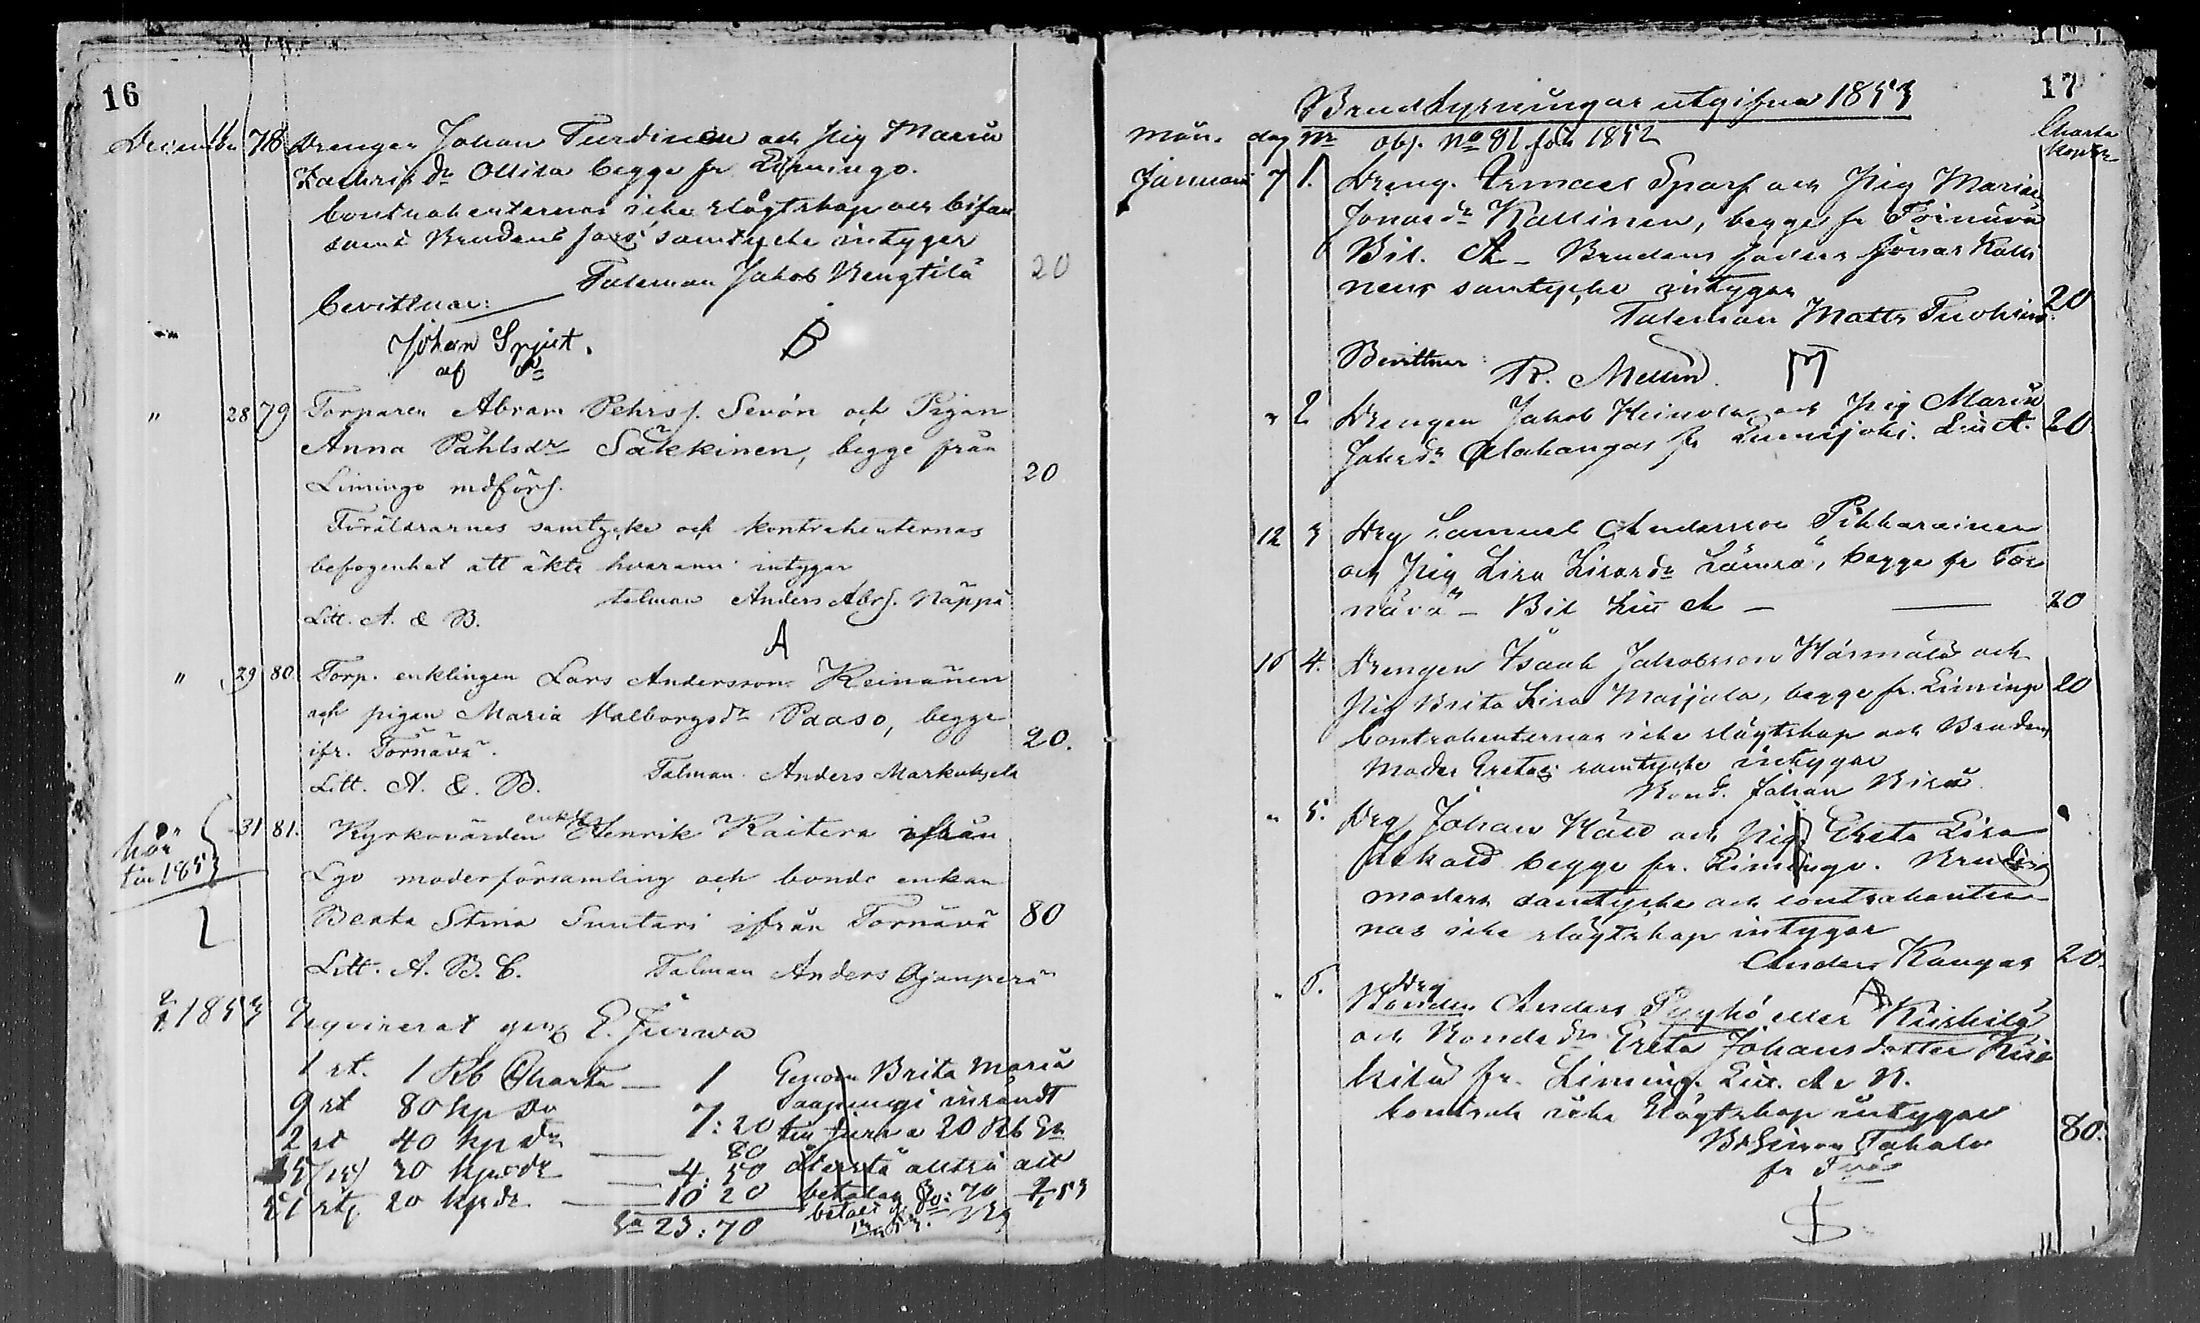 16
Decemb. 16 78 Drengen Johan Turdinen och Pig Maria
Zachrisdr Ollila begge fr Limingo.
Contrahenternas icke slägtskap och bifall
samt Brudens fars samtycke intygar
Taleman Jakob Rengtilä 20
bevittnar:
Johan Spjut.
B
" 28 79 Torparen Abram Pehrss. Sevón och Pigan
Anna Påhlsdr Säkkinen, begge från
Limingo mdförs. 20
Föräldrarnes samtycke och kontrahenternas
befogenhet att äkta hvarann intygar
talman Anders Abrs. Näppä
Litt. A. & B.
A
" 29 80. Torp. enklingen Lars Andersson Keinänen
och pigan Maria Valborgsdr Paaso, begge
ifr. Tornävä. 20.
Talman. Anders Markuksela
Litt. A. & B.
hör till 1853
31 81. Kyrkovärden enkl Henrik Raitera ifrån
Lgo moderförsamling och bonde enkan
Beata Stina Suutari ifrån Tornävä 80
Litt. A. B. C. Talman Anders Ojanperä
1853 Reqvirerat gen E. Jurwa
1 st. 1 Rb Charta — 1
9 st 80 kp do 7:20
2 st 40 kp do — 80
15 30 kp do — 4:50
51 st 20 kp do — 10 20
Sa 23:70
Genom Brita Maria
insändt
till Jurva 20 Rb Sr
återstå alltså att
betalas 70
betalt
17
Brudlysningar utgifna 1853
Mån. dag No obs. No 81 för 1852
Charta
Januari 7 1. Dreng. Ismael Sparf och Pig Maria
Jonasdr Kallinen, begge fr Törnävä
Bil. A – Brudens faders Jonas Kalli
nens samtycke intygar 20
Taleman Matts Tuohino.
Bevittnar
" 2 Drengen Jakob Heinola och Pig Maria
Jakobdr Alakangas fr Lumijoki. Litt A. 20.
12 3 Drg Samuel Andersson Pikkarainen
och Pig Lisa Lisasdr Lämsä, begge fr Tör
nävä – Bil Litt A — 20
16 4. Drengen Isaak Jakobsson Härmälä och
Pig Brita Lisa Maijala, begge fr. Limingo 20
Contrahenternas icke slägtskap och Brudens
Moder Gretas samtycke intygar
Bond. Johan
" 5. Drg Johan Hard och Pig Greta Lisa
begge fr. Limingo. Brudens
moders samtycke och contrahenter
nas icke slägtskap intygar
Anders Kangas 20.
" 6. Drg
Bonden Anders eller Kiiskilä
och Bondedr Greta Johansdotter Kiis
kilä fr. Limingo Litt. A & B.
Contrah icke Slägtskap intygar
Bd Simon Takalo 80.